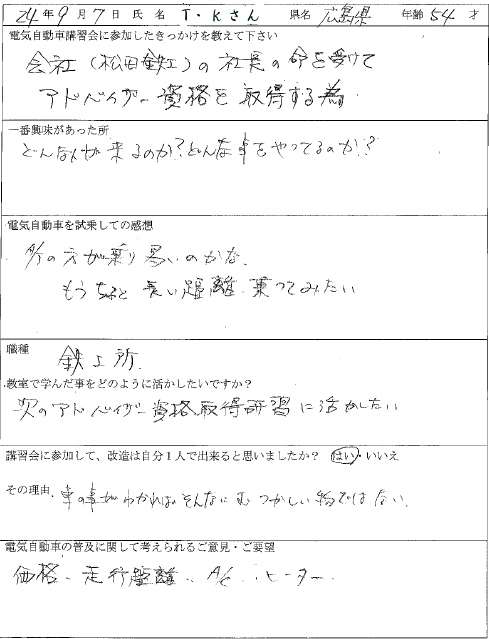 24年9月7日 氏名 T・Kさん 県名 広島県 年齢 54 才
電気自動車講習会に参加したきっかけを教えて下さい
会社(松田鉄工)の社長の命を受けて
アドバイザー資格を取得する為.
一番興味があった所
どんな人が来るのか?どんな事をやってるのか??
電気自動車を試乗しての感想
の方が乗り易いのかな.
もうちょっと長い距離乗ってみたい
職種 鉄工所.
教室で学んだ事をどのように活かしたいですか?
次のアドバイザー資格取得研習に活かしたい
講習会に参加して、改造は自分1人で出来ると思いましたか? はい・いいえ
その理由. 車の事がわかればそんなにむつかしい物ではない.
電気自動車の普及に関して考えられるご意見・ご要望
価格、走行距離、A/C、ヒーター.